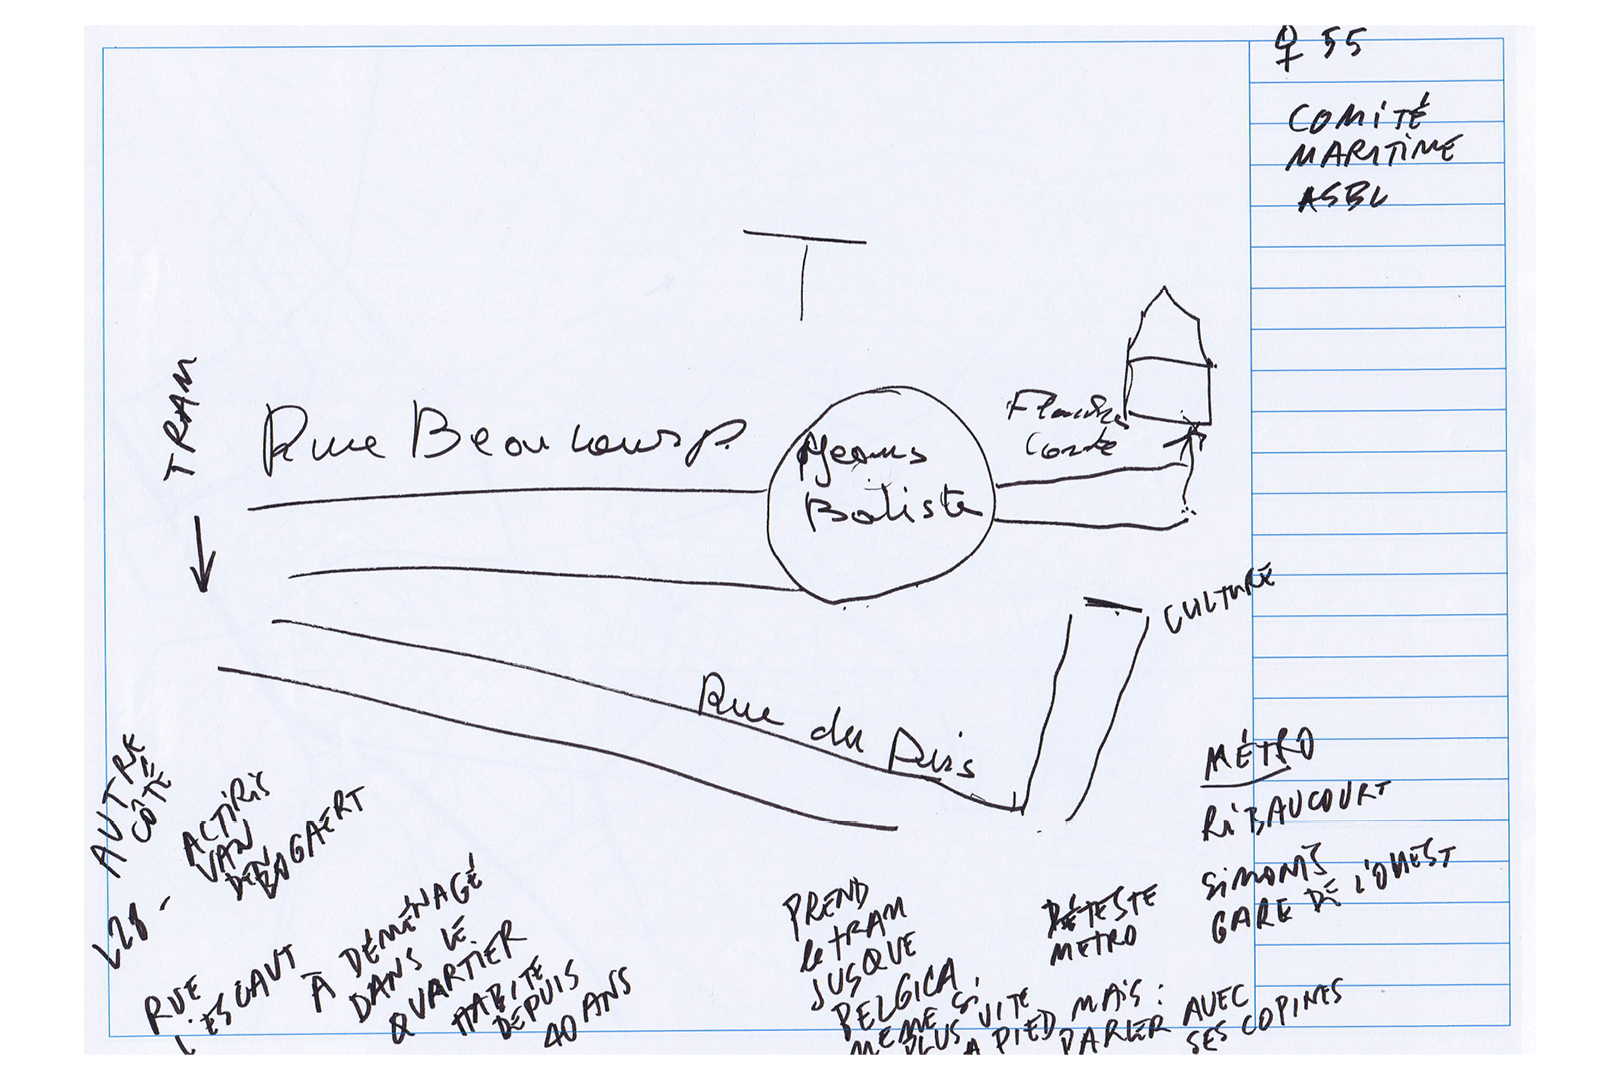 ♀ 55
COMITÉ
MARITIME
ASBL
TRAM
Rue Beaucourp.
Jeans
Baliste
Comte
CULTURE
Rue du Puis
AUTRE
CÔTÉ
L28 -
ACTIRIS
VAN
DEN
BOGAERT
RUE
L'ESCAUT
À DÉMÉNAGÉ
DANS LE
QUARTIER
HABITE
DEPUIS
40 ANS
PREND
le TRAM
JUSQUE
BELGICA.
MÊME SI
PLUS VITE
A PIED MAIS :
PARLER AVEC
SES COPINES
DÉTESTE
METRO
MÉTRO
RIBAUCOURT
SIMONIS
GARE DE L'OUEST